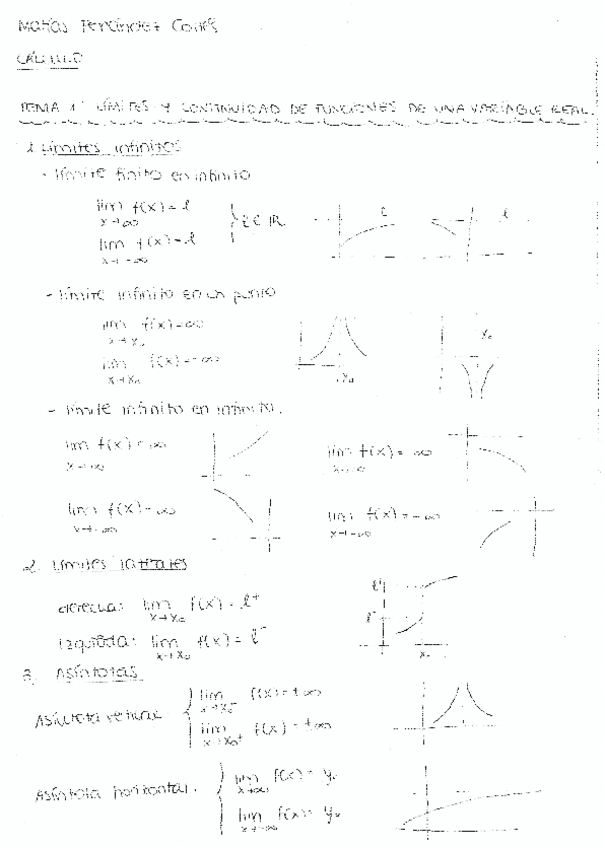 Matías Fernández
CÁLCULO
TEMA 1: LÍMITES Y CONTINUIDAD DE FUNCIONES DE UNA VARIABLE REAL.
1. Límites infinitos
- Límite finito en infinito
lim f(x) = l
x→∞
lim f(x) = l
x→-∞
l ∈ ℝ
l
l
- Límite infinito en un punto
lim f(x) = ∞
x→x₀
lim f(x) = -∞
x→x₀
x₀
x₀
- Límite infinito en infinito.
lim f(x) = ∞
x→∞
lim f(x) = ∞
lim f(x) = ∞
x→-∞
lim f(x) = -∞
x→-∞
2. Límites laterales
derecha: lim f(x) = l⁺
x→x₀
izquierda: lim f(x) = l⁻
x→x₀
l⁺
l⁻
x₀
3. Asíntotas
Asíntota vertical
lim f(x) = ±∞
x→x₀⁻
lim f(x) = ±∞
x→x₀⁺
Asíntota horizontal.
lim f(x) = y₀
x→∞
lim f(x) = y₀
x→-∞